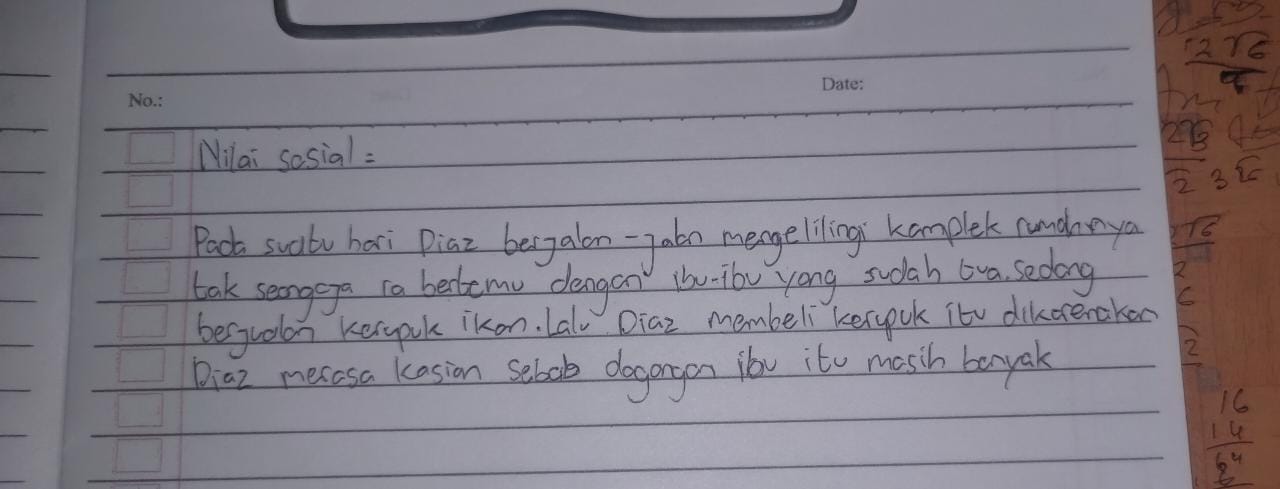 No.:
Date:
Nilai sosial =
Pada suatu hari Diaz berjalan-jalan mengelilingi komplek rumahnya
tak seongaja ia bertemu dengan ibu-ibu yang sudah tua. Sedang
berjualan kerupuk ikan. Lalu Diaz membeli kerupuk itu dikarenakan
Diaz merasa kasian sebab dagangan ibu itu masih banyak
12 √6
3
16
14
64